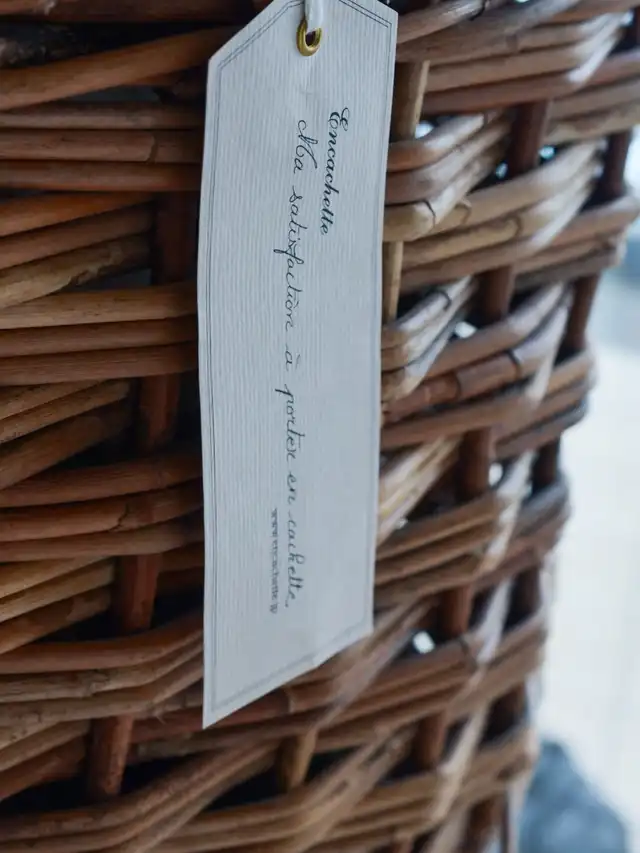 Encachette
Ma satisfaction à porter en cachette.
www.encachette.jp